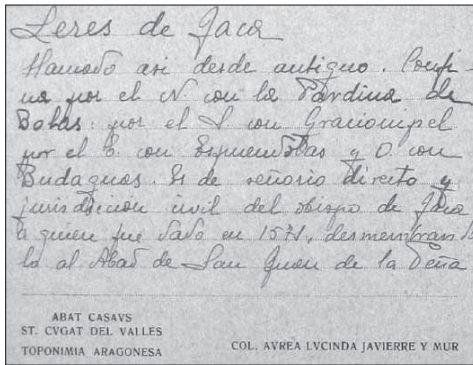 Leres de Jaca
Llamado asi desde antiguo. Confi-
na por el N con la Pardina de
Botas: por el S. con Gracionpel
por el E. con Espuendolas y O. con
Budaguas. Es de señorio directo y
jurisdiccion civil del obispo de Jaca
a quien fue dado en 1571, desmembran
lo al Abad de San Juan de la Peña
ABAT CASAVS
ST. CVGAT DEL VALLÉS
TOPONIMIA ARAGONESA
COL. AVREA LVCINDA JAVIERRE Y MUR